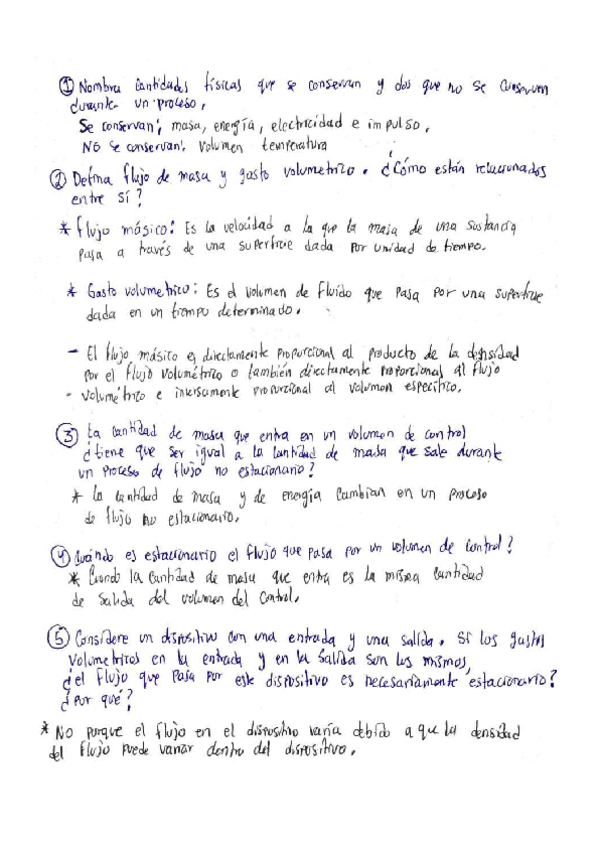 ① Nombra cantidades físicas que se conservan y dos que no se conserven
durante un proceso.
Se conservan: masa, energía, electricidad e impulso.
NO se conservan: volumen temperatura
② Defina flujo de masa y gasto volumetrico. ¿Cómo están relacionados
entre sí?
* flujo másico: Es la velocidad a la que la masa de una sustancia
pasa a través de una superficie dada por unidad de tiempo.
* Gasto volumetrico: Es el volumen de fluido que pasa por una superficie
dada en un tiempo determinado.
- El flujo másico es directamente proporcional al producto de la densidad
por el flujo volumétrico o también directamente proporcional al flujo
- volumétrico e inversamente proporcional al volumen específico.
③ La cantidad de masa que entra en un volumen de control
¿tiene que ser igual a la cantidad de masa que sale durante
un proceso de flujo no estacionario?
* la cantidad de masa y de energía cambian en un proceso
de flujo no estacionario.
④ Cuándo es estacionario el flujo que pasa por un volumen de control?
* Cuando la cantidad de masa que entra es la misma cantidad
de salida del volumen del control.
⑤ Considere un dispositivo con una entrada y una salida. Si los gastos
volumetricos en la entrada y en la salida son los mismos,
¿el flujo que pasa por este dispositivo es necesariamente estacionario?
¿por qué?
* NO porque el flujo en el dispositivo varía debido a que la densidad
del flujo puede variar dentro del dispositivo.